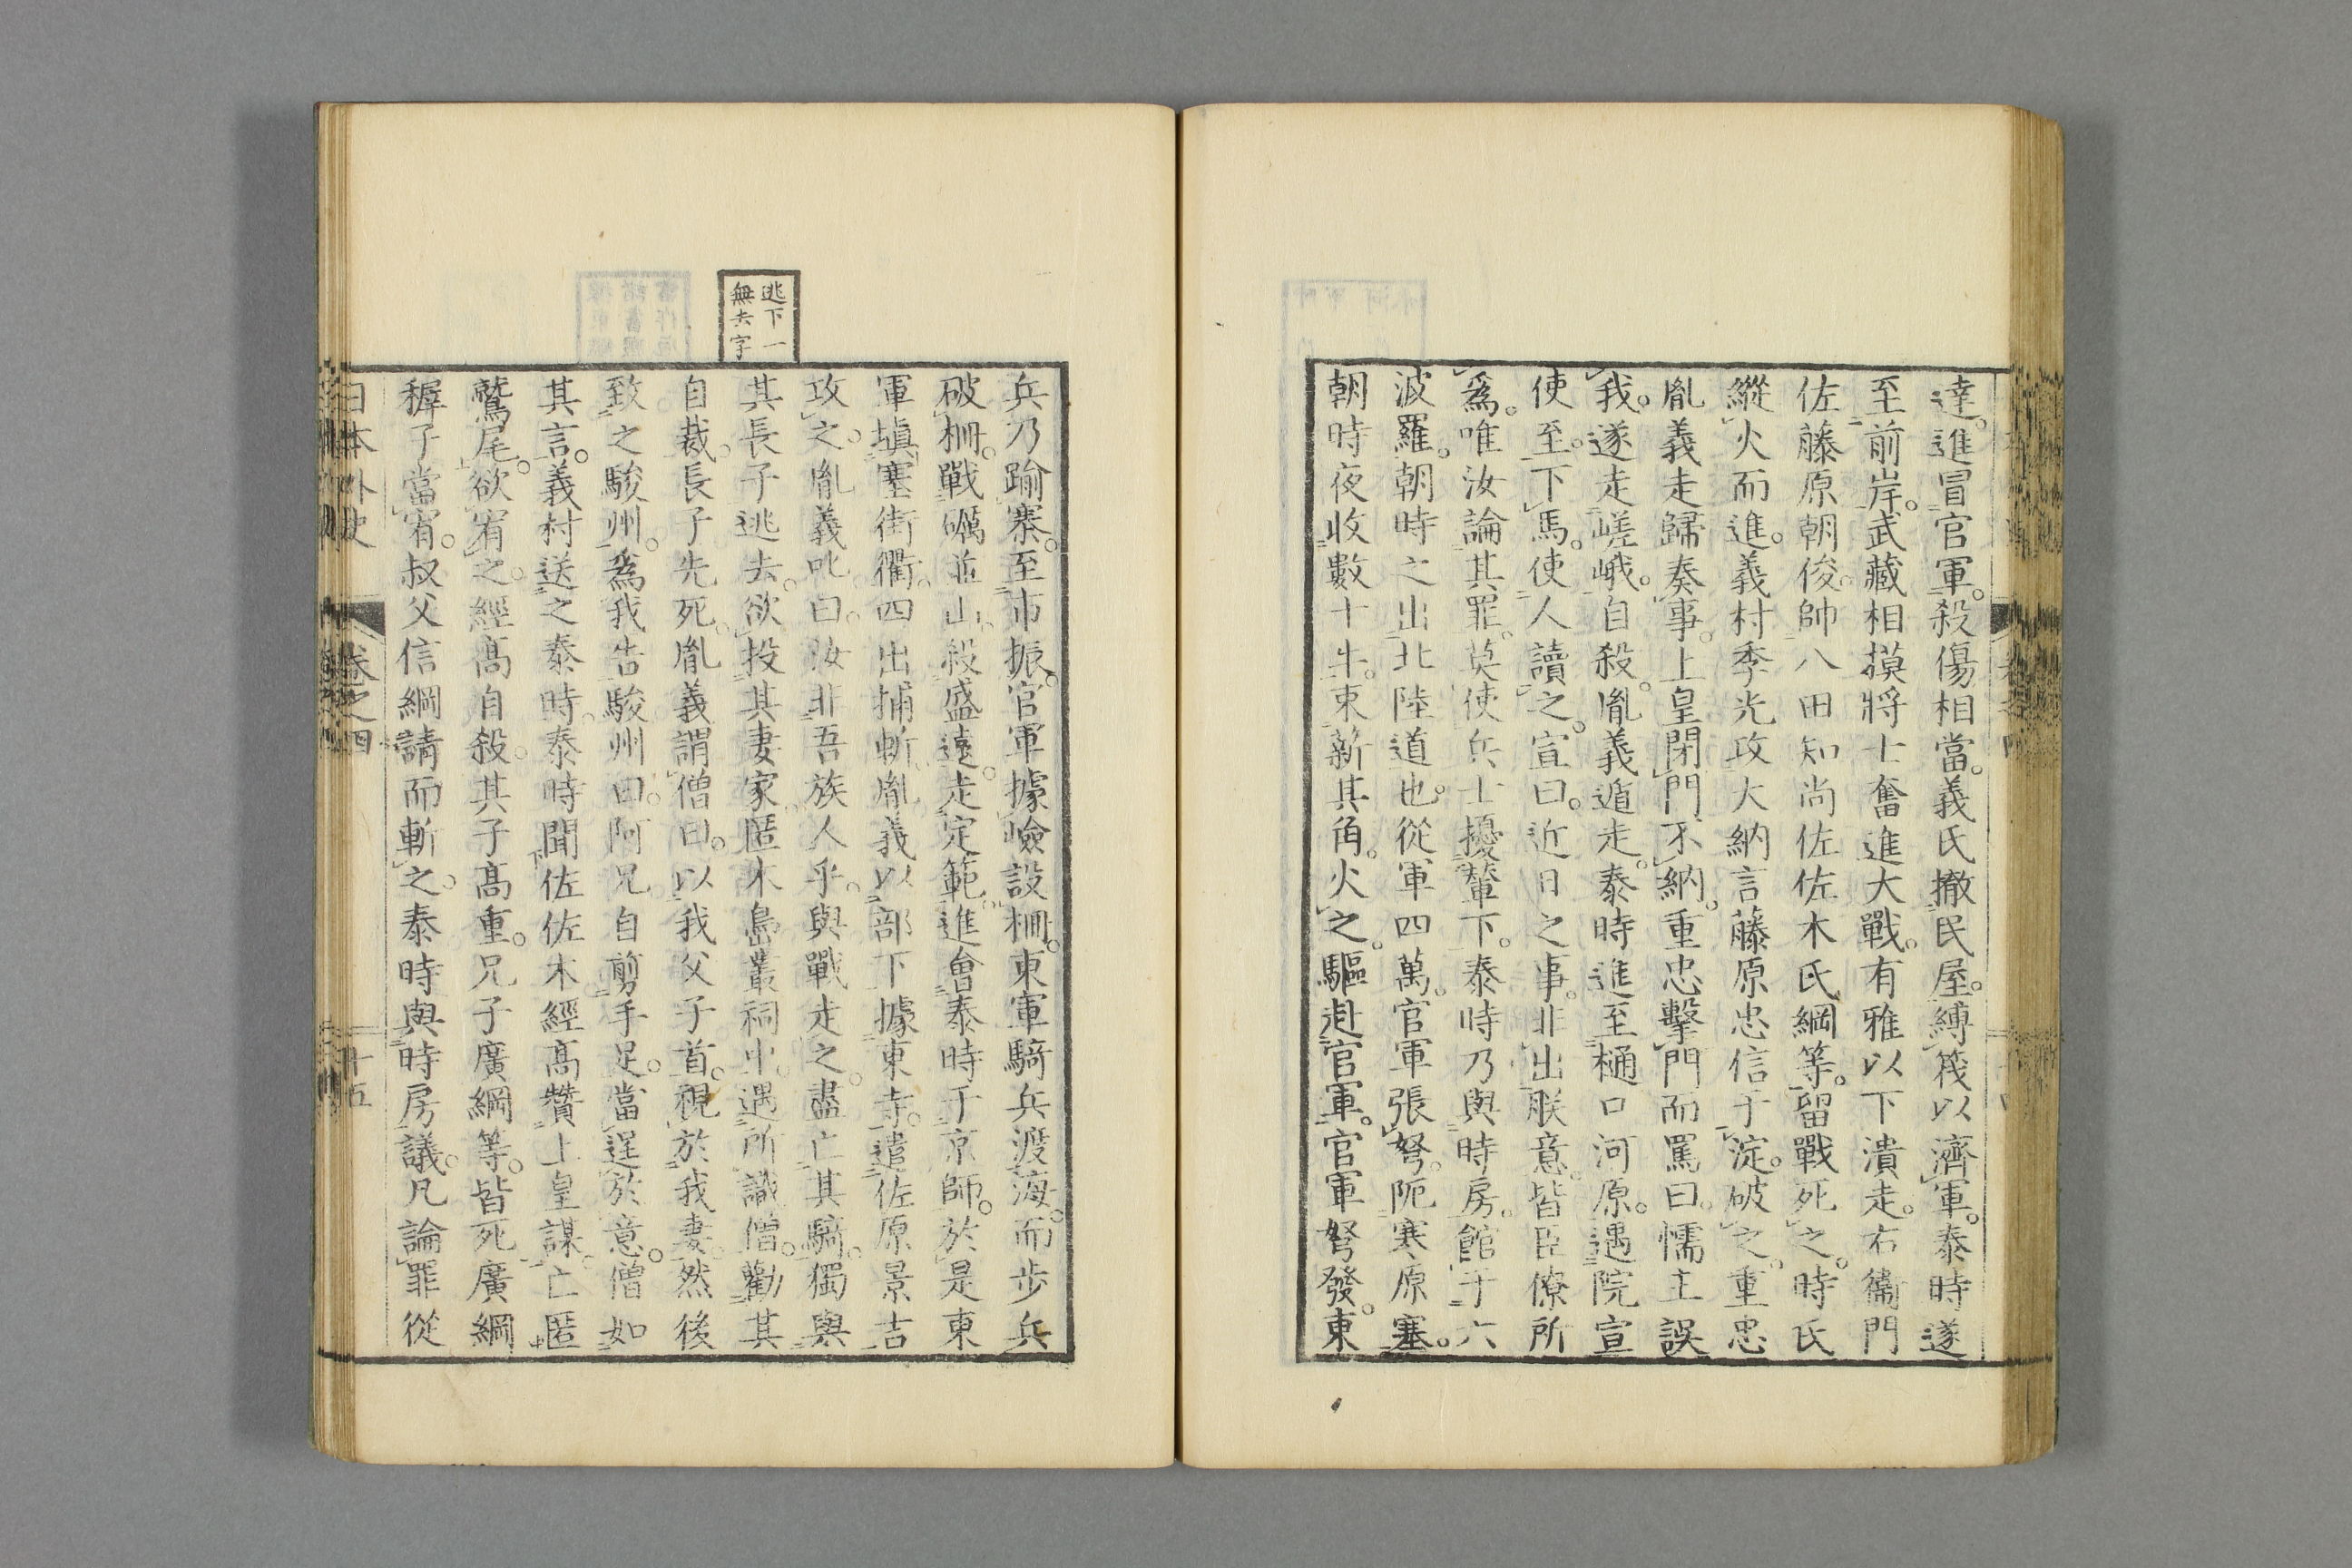 達。進冒官軍。殺傷相當。義氏撤民屋。縛筏以濟軍。泰時遂
至前岸。武藏相摸將士奮進大戰。有雅以下潰走。右衞門
佐藤原朝俊。帥八田知尚佐佐木氏綱等。留戰死之。時氏
縱火而進。義村季光攻大納言藤原忠信于淀。破之。重忠
胤義走歸奏事。上皇閉門不納。重忠擊門而罵曰。懦主誤
我。遂走嵯峨。自殺。胤義遁走。泰時進至樋口河原。遇院宣
使至。下馬。使人讀之。宣曰。近日之事。非出朕意。皆臣僚所
爲。唯汝論其罪。莫使兵士擾輦下。泰時乃與時房。館于六
波羅。朝時之出北陸道也。從軍四萬。官軍張弩。阨寒原塞。
朝時夜收數十牛。束薪其角。火之。驅赴官軍。官軍弩發。東
逃下一
無去字
兵乃踰寨。至市振。官軍據嶮設柵。東軍騎兵渡海。而步兵
破柵。戰礪並山。殺盛遠。走定範。進會泰時于京師。於是東
軍塡塞街衢。四出捕斬。胤義以部下據東寺。遣佐原景吉
攻之。胤義叱曰。汝非吾族人乎。與戰走之。盡亡其騎。獨與
其長子逃去。欲投其妻家。匿木島叢祠中。遇所識僧。勸其
自裁。長子先死。胤義謂僧曰。以我父子首。視於我妻。然後
致之駿州。爲我告駿州曰。阿兄自剪手足。當逞於意。僧如
其言。義村送之泰時。泰時聞佐佐木經高贊上皇謀。亡匿
鷲尾。欲宥之。經高自殺。其子高重。兄子廣綱等。皆死。廣綱
穉子當宥。叔父信綱請而斬之。泰時與時房議。凡論罪從
日本外史
卷之四
十五